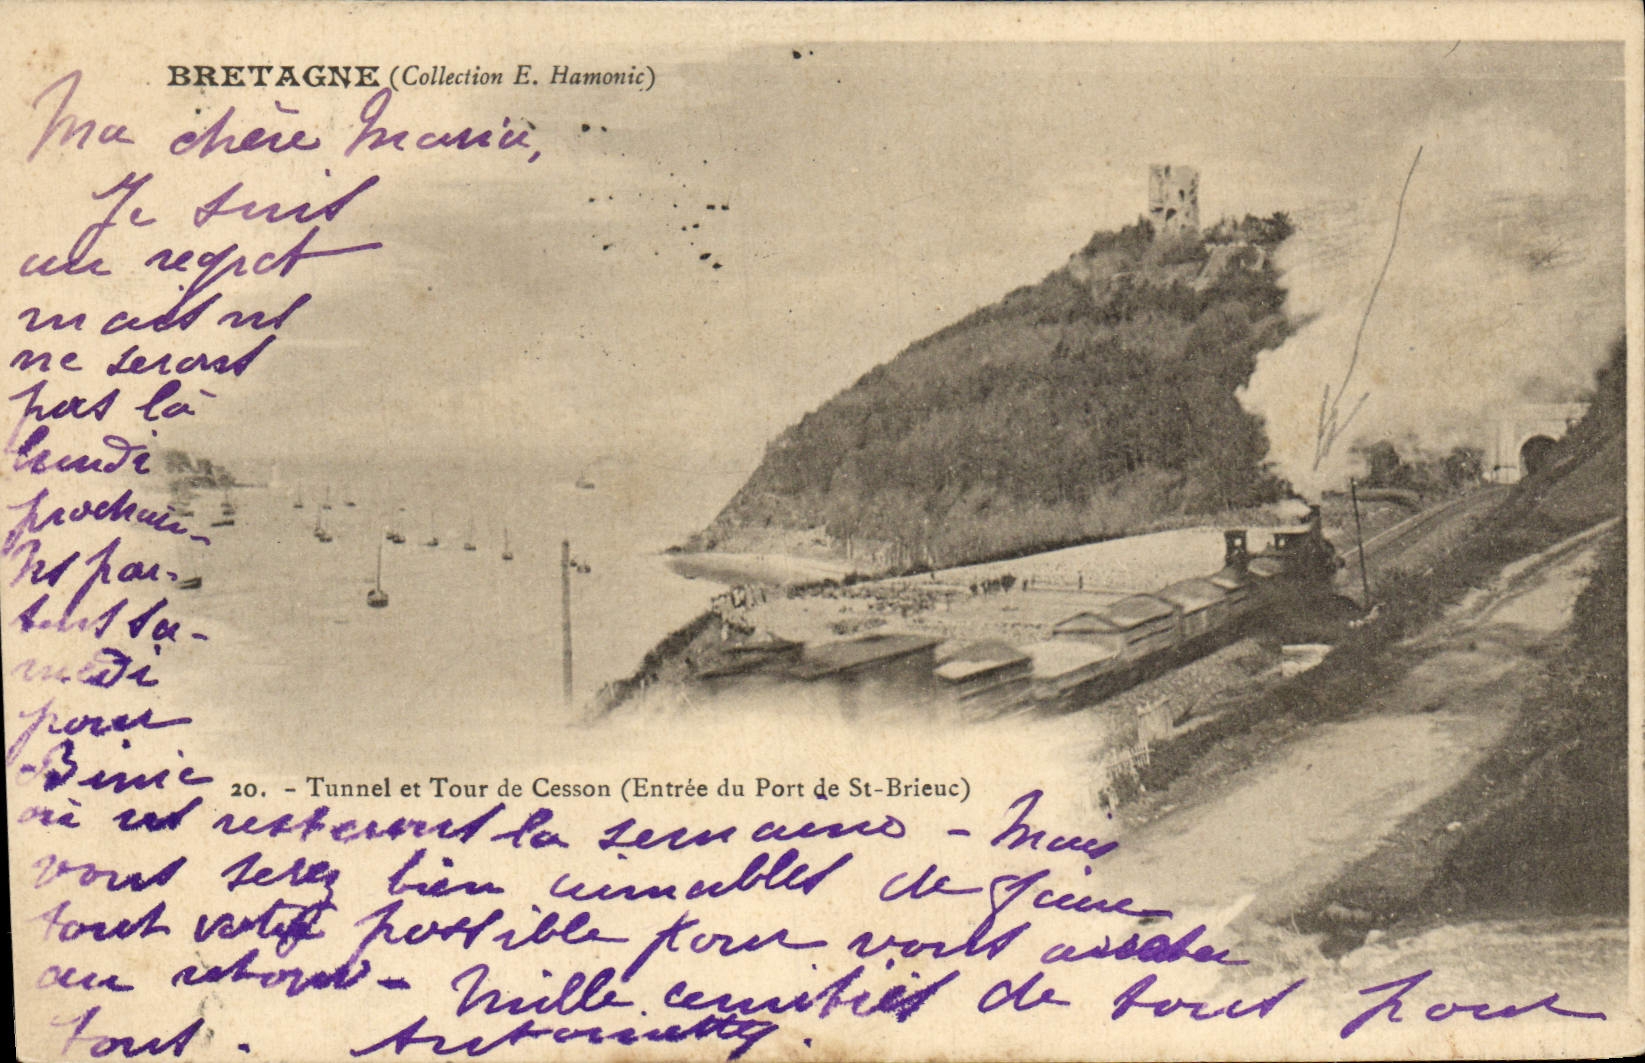 BRETAGNE (Collection E. Hamonic)
Ma chère Maria,
Je suis
au regret
mais ns
ne serons
pas là
lundi
prochain_
Ns par-
tons sa-
medi
pour
Binic
20. - Tunnel et Tour de Cesson (Entrée du Port de St-Brieuc)
où ns resterons la semaine - Mais
vous serez bien aimables de faire
tout votre possible pour vous arrêter
au retour - Mille amitiés de tous pour
tous. Antoinette.